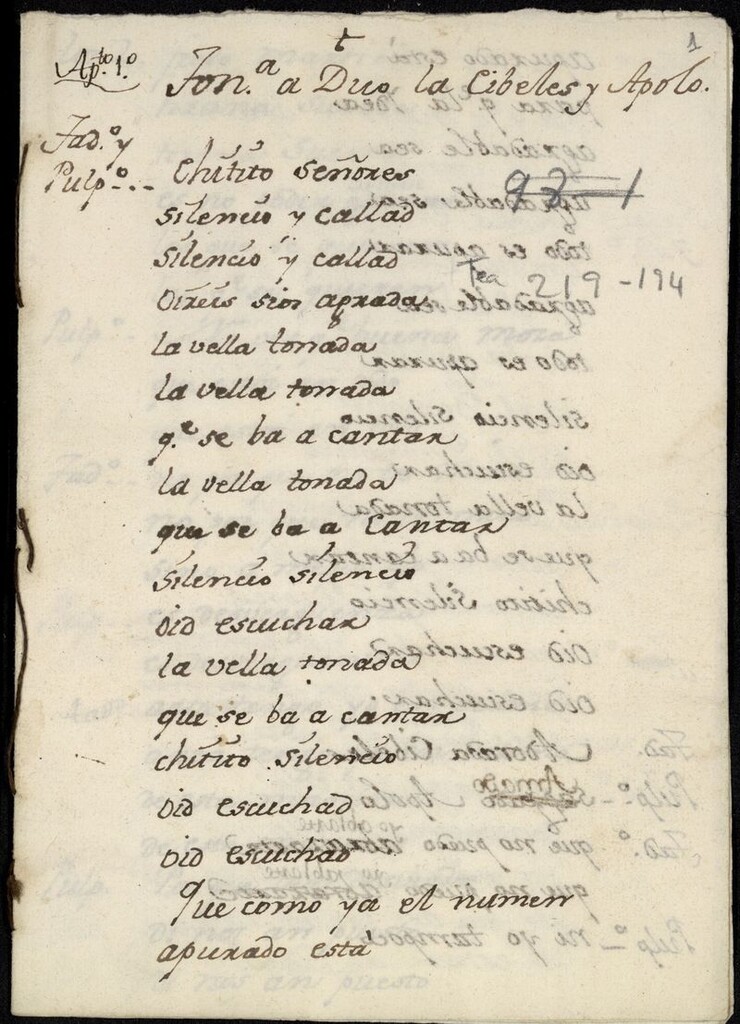 t
1
Ap.to 1.o
Ton.a a Duo la Cibeles y Apolo.
Tad.o y
Pulp.o ..
Chitito señores
92-1
silencio y callad
silencio y callad
Tea 219-194
oireis si os agrada
la vella tonada
la vella tonada
q.e se ba a cantar
la vella tonada
que se ba a cantar
silencio silencio
oid escuchar
la vella tonada
que se ba a cantar
chitito silencio
oid escuchad
oid escuchad
Que como ya el numen
apurado está